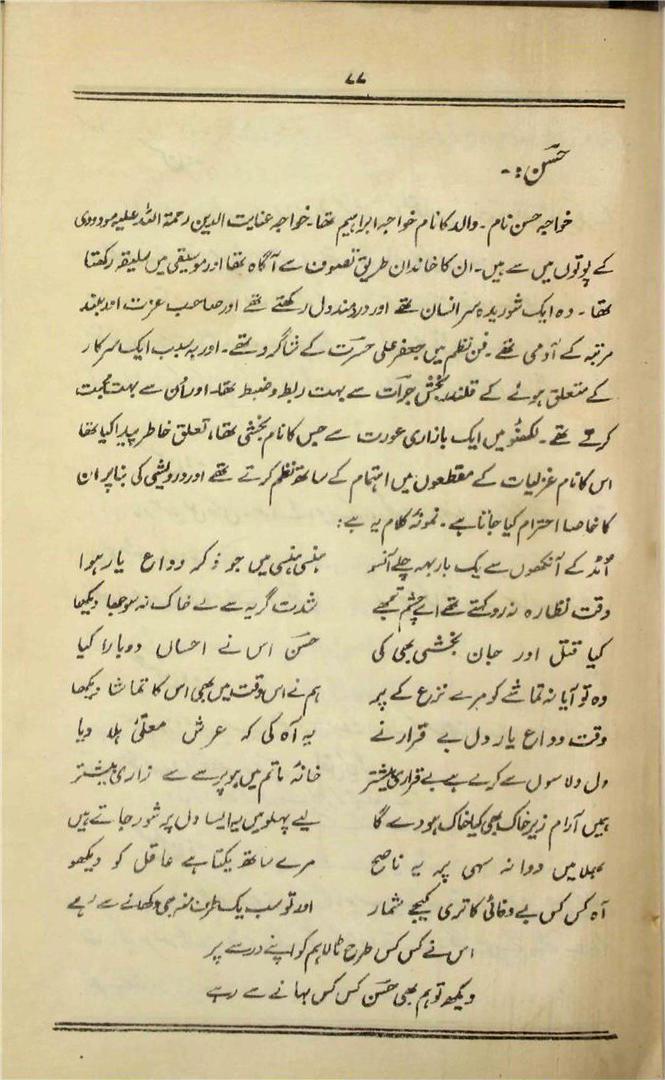 ۷۷
حسن :۔
خواجہ حسن نام ۔ والد کا نام خواجہ ابراہیم تھا ۔ خواجہ عنایت الدین رحمۃ اللہ علیہ مودودی
کے پوتوں میں سے ہیں ۔ ان کا خاندان طریق تصوف سے آگاہ تھا اور موسیقی میں سلیقہ رکھتا
تھا ۔ وہ ایک شوریدہ سر انسان تھے اور دردمند دل رکھتے تھے اور صاحب عزت اور بلند
مرتبہ کے آدمی تھے ۔ فن نظم میں جعفر علی حسرت کے شاگرد تھے ۔ اور بہ سبب ایک سرکار
کے متعلق ہونے کے قلندر بخش جرأت سے بہت ربط و ضبط تھا ۔ اور اُن سے بہت محبت
کرتے تھے ۔ لکھنؤ میں ایک بازاری عورت سے جس کا نام بخشی تھا ، تعلق خاطر پیدا کیا تھا
اس کا نام غزلیات کے مقطعوں میں اہتمام کے ساتھ نظم کرتے تھے اور درویشی کی بنا پر ان
کا خاصا احترام کیا جاتا ہے ۔ نمونہ کلام یہ ہے :
اُمڈ کے آنکھوں سے یک بار بہہ چلے آنسو ہنسی ہنسی میں جو ذکر وداع یار ہوا
وقت نظارہ نہ رو کہتے تھے اے چشم تجھے شدت گریہ سے لے خاک نہ سوجھا دیکھا
کیا قتل اور جان بخشی بھی کی حسن اس نے احساں دوبارا کیا
وہ تو آیا نہ تماشے کو مرے نزع کے پر ہم نے اس وقت میں بھی اس کا تماشا دیکھا
وقت وداع یار دل بے قرار نے یہ آہ کی کہ عرش معلّیٰ ہلا دیا
دل دلاسوں سے کرے ہے بے قراری بیشتر خانۂ ماتم میں ہو پرسے سے زاری بیشتر
ہمیں آرام زیر خاک بھی کیا خاک ہووے گا لیے پہلو میں یہ ایسا دل پر شور جاتے ہیں
بھلا میں دوانہ سہی پر یہ ناصح مرے ساتھ بکتا ہے عاقل کو دیکھو
آہ کس کس بے وفائی کا تری کیجے شمار اور تو سب یک طرف منہ بھی دکھانے سے رہے
اس نے کس کس طرح ٹالا ہم کو اپنے در سے پر
دیکھو تو ہم بھی حسن کس کس بہانے سے رہے